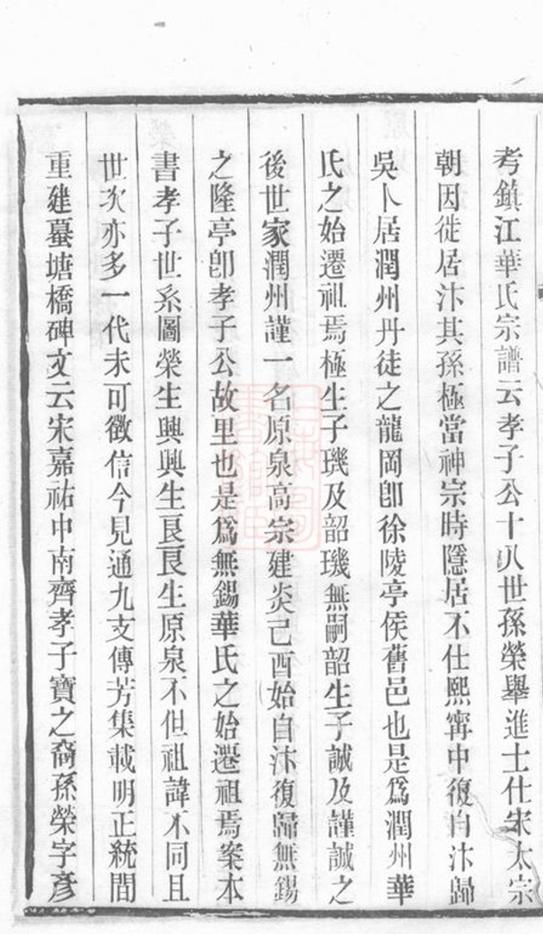 考鎮江華氏宗譜云孝子公十八世孫榮舉進士仕宋太宗
朝因徙居汴其孫極當神宗時隱居不仕熙甯中復自汴歸
吳卜居潤州丹徒之龍岡卽徐陵亭侯舊邑也是爲潤州華
氏之始遷祖焉極生子璣及韶璣無嗣韶生子誠及謹誠之
後世家潤州謹一名原泉高宗建炎己酉始自汴復歸無錫
之隆亭卽孝子公故里也是爲無錫華氏之始遷祖焉案本
書孝子世系圖榮生興興生艮艮生原泉不但祖諱不同且
世次亦多一代未可徵信今見通九支傳芳集載明正統間
重建蠆塘橋碑文云宋嘉祐中南齊孝子寶之裔孫榮字彥